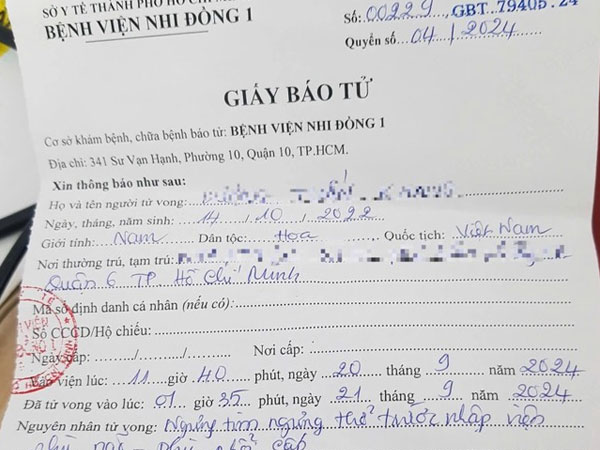 SỞ Y TẾ THÀNH PHỐ HỒ CHÍ
BỆNH VIỆN NHI ĐỒNG 1
Số: 00229 GBT. 79405.24
Quyển số 04/2024
GIẤY BÁO TỬ
Cơ sở khám bệnh, chữa bệnh báo tử: BỆNH VIỆN NHI ĐỒNG 1
Địa chỉ: 341 Sư Vạn Hạnh, Phường 10, Quận 10, TP.HCM.
Xin thông báo như sau:
Họ và tên người tử vong:
Ngày, tháng, năm sinh: 14 / 10 / 2022
Giới tính: Nam Dân tộc: Hoa, Quốc tịch: Việt Nam
Nơi thường trú, tạm trú:
Quận 6 TP Hồ Chí Minh
Mã số định danh cá nhân (nếu có):
Số CCCD/Hộ chiếu:
Ngày cấp: / / Nơi cấp:
viện lúc: 11 giờ 40 phút, ngày 20 tháng 9 năm 2024
Đã tử vong vào lúc: 01 giờ 35 phút, ngày 21 tháng 9 năm 2024
Nguyên nhân tử vong: Ngưng tim ngưng thở trước nhập viện
phù não - phù phổi cấp